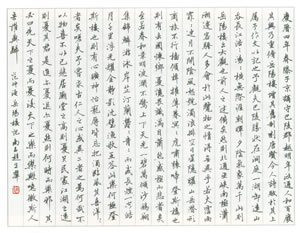 慶曆四年春滕子京謫守巴陵郡越明年政通人和百廢
具興乃重修岳陽樓增其舊制刻唐賢今人詩賦於其上
屬予作文以記之予觀夫巴陵勝狀在洞庭一湖銜遠山
吞長江浩浩湯湯橫無際涯朝暉夕陰氣象萬千此則
岳陽樓之大觀也前人之述備矣然則北通巫峽南極
瀟湘遷客騷人多會於此覽物之情得無異乎若夫霪雨霏
霏連月不開陰風怒號濁浪排空日星隱耀山岳潛形
商旅不行檣傾楫摧薄暮冥冥虎嘯猿啼登斯樓也則
有去國懷鄉憂讒畏譏滿目蕭然感極而悲者矣
至若春和景明波瀾不驚上下天光一碧萬頃沙鷗翔
集錦鱗游泳岸芷汀蘭郁郁青青而或長煙一空皓
月千里浮光躍金靜影沉璧漁歌互答此樂何極登
斯樓也則有心曠神怡寵辱偕忘把酒臨風其喜洋洋
者矣嗟夫予嘗求古仁人之心或異二者之為何哉不
以物喜不以己悲居廟堂之高則憂其民處江湖之遠
則憂其君是進亦憂退亦憂然則何時而樂耶其
必曰先天下之憂而憂後天下之樂而樂歟噫微斯人
吾誰與歸 范仲淹岳陽樓記